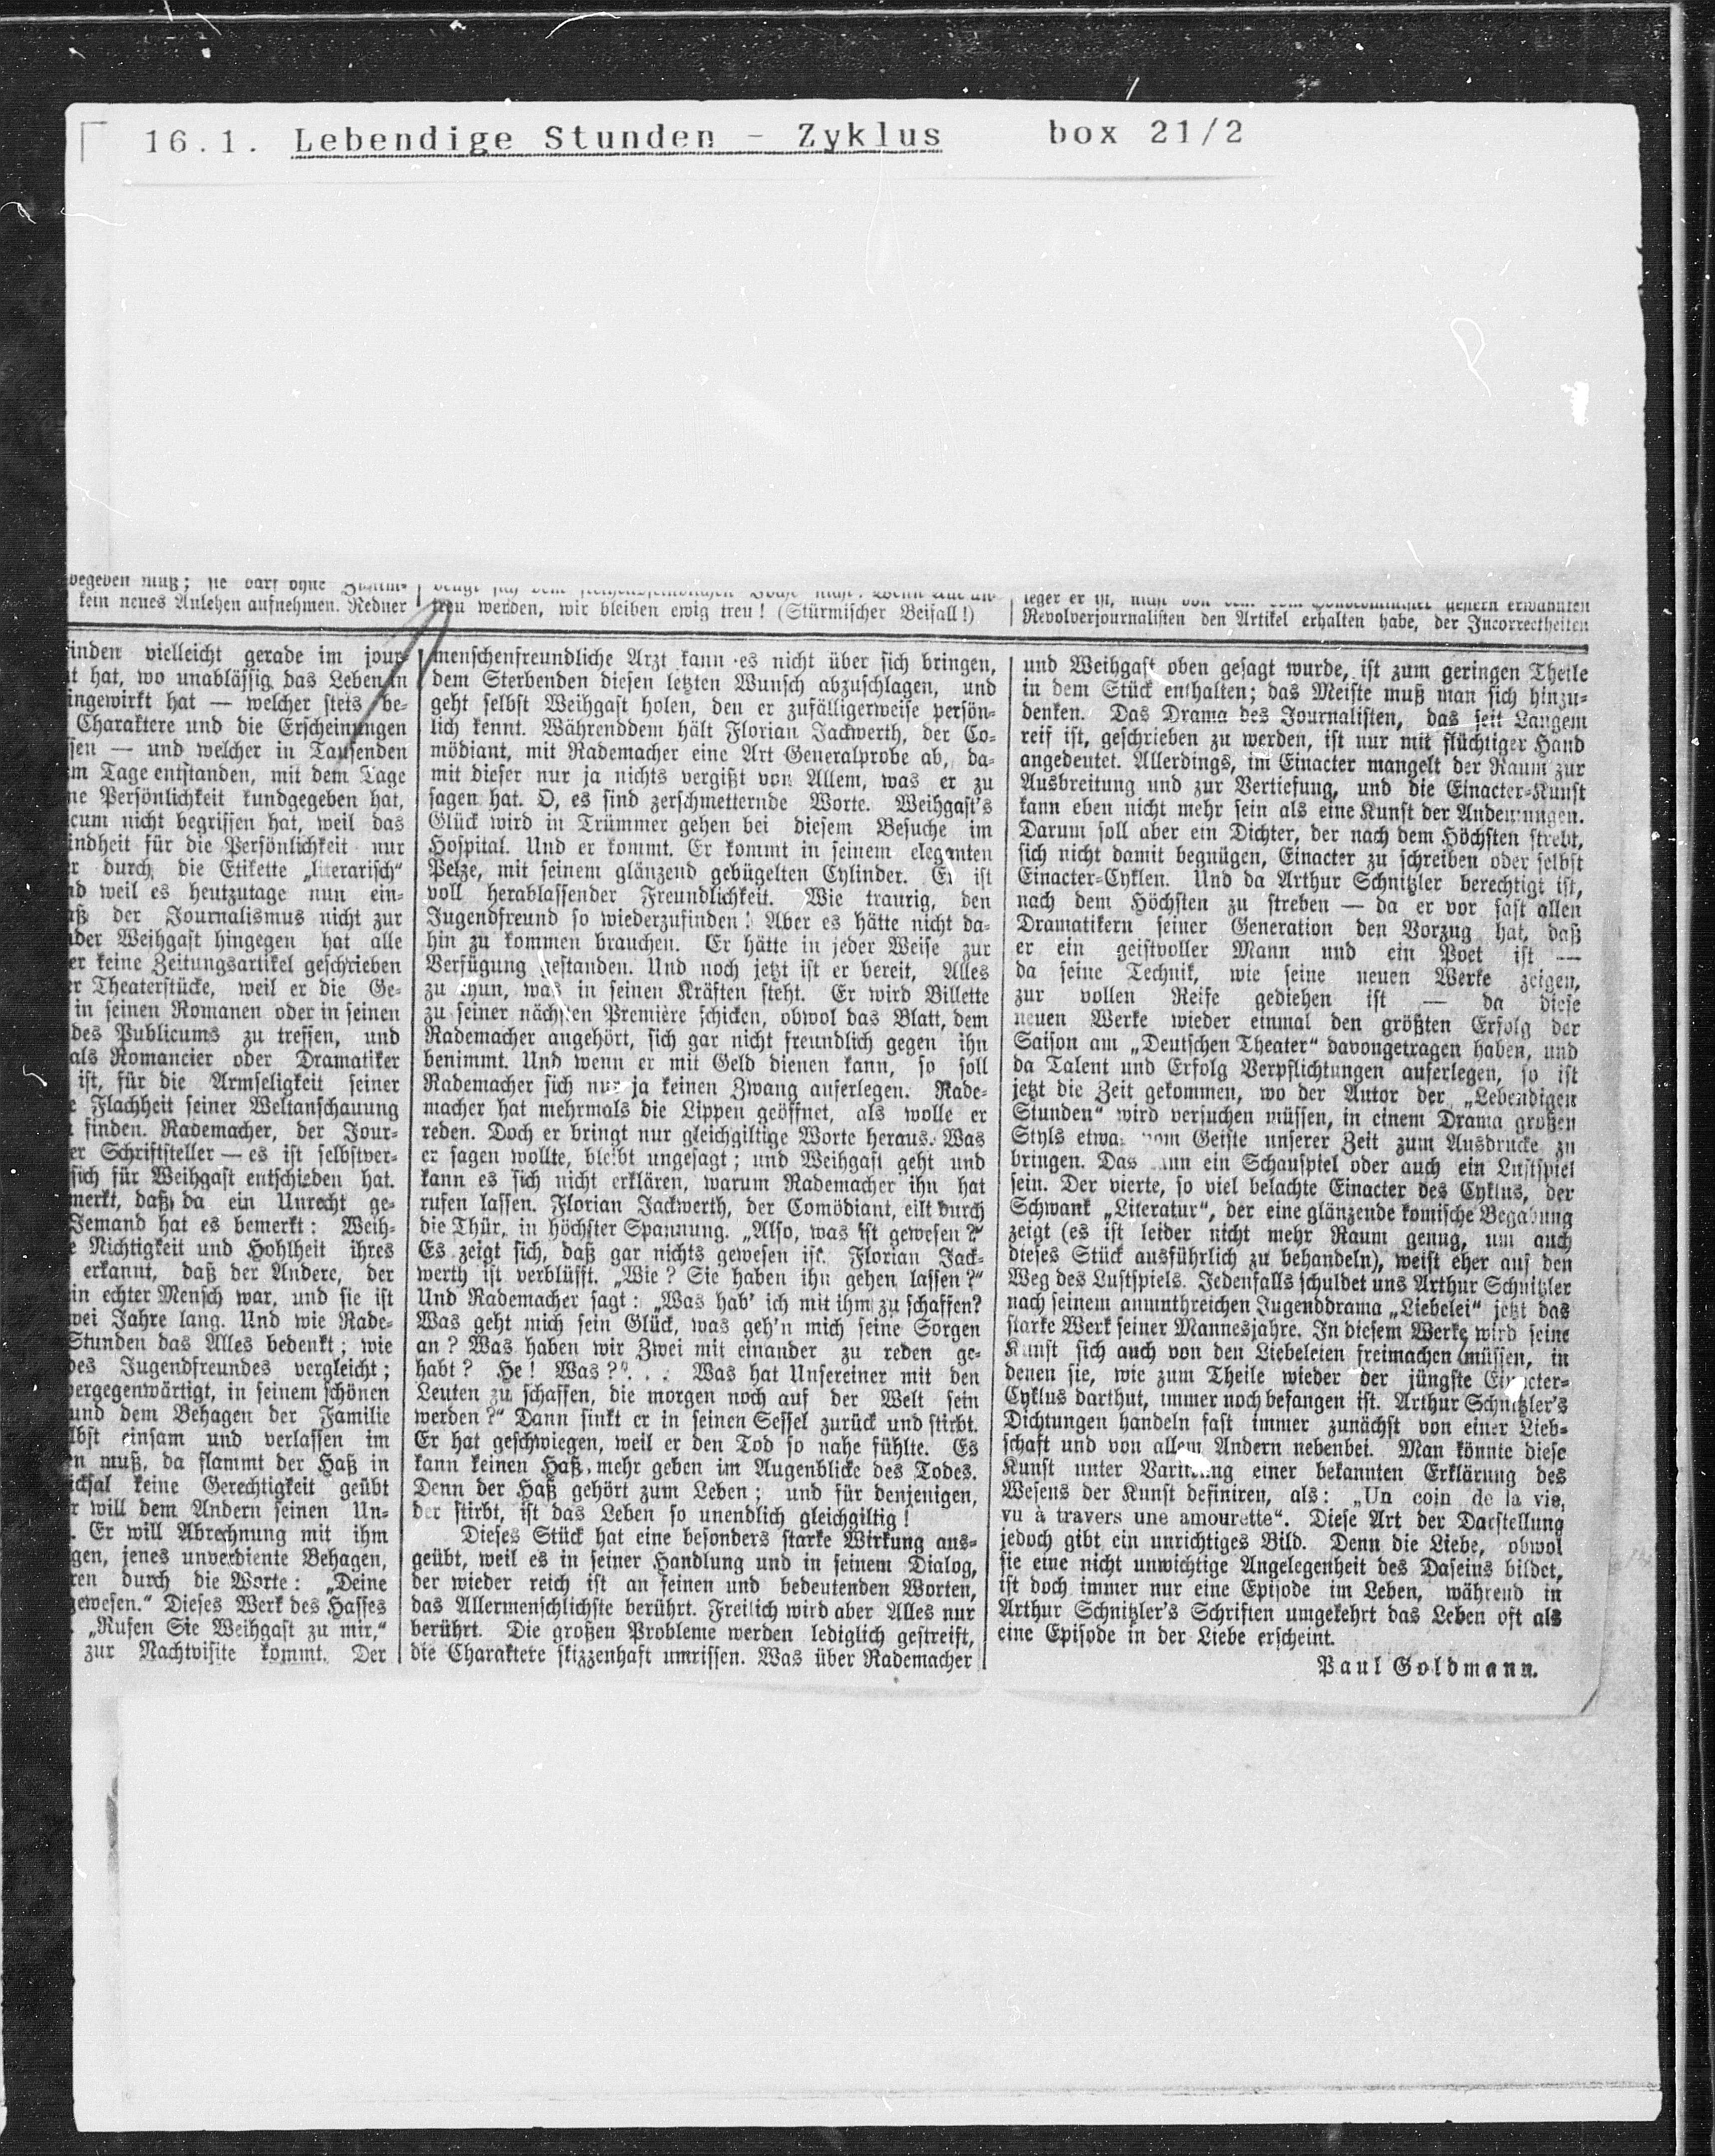 16.1. Lebendige Stunden - Zyklus box 21/2
kein neues Anlehen aufnehmen. Redner
inden vielleicht gerade im jour-
t hat, wo unablässig das Leben in
ingewirkt hat — welcher stets be-
Charaktere und die Erscheinungen
sen — und welcher in Tausenden
m Tage entstanden, mit dem Tage
ne Persönlichkeit kundgegeben hat,
cum nicht begriffen hat, weil das
indheit für die Persönlichkeit nur
r durch die Etikette „literarisch“
nd weil es heutzutage nun ein-
aß der Journalismus nicht zur
der Weihgast hingegen hat alle
er keine Zeitungsartikel geschrieben
r Theaterstücke, weil er die Ge-
in seinen Romanen oder in seinen
des Publicums zu treffen, und
als Romancier oder Dramatiker
ist, für die Armseligkeit seiner
e Flachheit seiner Weltanschauung
finden. Rademacher, der Jour-
er Schriftsteller — es ist selbstver-
sich für Weihgast entschieden hat.
merkt, daß da ein Unrecht ge-
Jemand hat es bemerkt: Weih-
e Nichtigkeit und Hohlheit ihres
erkannt, daß der Andere, der
in echter Mensch war, und sie ist
wei Jahre lang. Und wie Rade-
Stunden das Alles bedenkt; wie
des Jugendfreundes vergleicht;
vergegenwärtigt, in seinem schönen
und dem Behagen der Familie
lbst einsam und verlassen im
en muß, da flammt der Haß in
icksal keine Gerechtigkeit geübt
r will dem Andern seinen Un-
. Er will Abrechnung mit ihm
gen, jenes unverdiente Behagen,
ren durch die Worte: „Deine
gewesen.“ Dieses Werk des Hasses
„Rufen Sie Weihgast zu mir,“
zur Nachtvisite kommt. Der
treu werden, wir bleiben ewig treu! (Stürmischer Beifall!)
menschenfreundliche Arzt kann es nicht über sich bringen,
dem Sterbenden diesen letzten Wunsch abzuschlagen, und
geht selbst Weihgast holen, den er zufälligerweise persön-
lich kennt. Währenddem hält Florian Jackwerth, der Co-
mödiant, mit Rademacher eine Art Generalprobe ab, da-
mit dieser nur ja nichts vergißt von Allem, was er zu
sagen hat. O, es sind zerschmetternde Worte. Weihgast's
Glück wird in Trümmer gehen bei diesem Besuche im
Hospital. Und er kommt. Er kommt in seinem eleganten
Pelze, mit seinem glänzend gebügelten Cylinder. Er ist
voll herablassender Freundlichkeit. Wie traurig, den
Jugendfreund so wiederzufinden! Aber es hätte nicht da-
hin zu kommen brauchen. Er hätte in jeder Weise zur
Verfügung gestanden. Und noch jetzt ist er bereit, Alles
zu thun, was in seinen Kräften steht. Er wird Billette
zu seiner nächsten Première schicken, obwol das Blatt, dem
Rademacher angehört, sich gar nicht freundlich gegen ihn
benimmt. Und wenn er mit Geld dienen kann, so soll
Rademacher sich nur ja keinen Zwang auferlegen. Rade-
macher hat mehrmals die Lippen geöffnet, als wolle er
reden. Doch er bringt nur gleichgiltige Worte heraus. Was
er sagen wollte, bleibt ungesagt; und Weihgast geht und
kann es sich nicht erklären, warum Rademacher ihn hat
rufen lassen. Florian Jackwerth, der Comödiant, eilt durch
die Thür, in höchster Spannung. „Also, was ist gewesen?“
Es zeigt sich, daß gar nichts gewesen ist. Florian Jack-
werth ist verblüfft. „Wie? Sie haben ihn gehen lassen?“
Und Rademacher sagt: „Was hab' ich mit ihm zu schaffen?
Was geht mich sein Glück, was geh'n mich seine Sorgen
an? Was haben wir Zwei mit einander zu reden ge-
habt? He! Was?“ . . . Was hat Unsereiner mit den
Leuten zu schaffen, die morgen noch auf der Welt sein
werden?“ Dann sinkt er in seinen Sessel zurück und stirbt.
Er hat geschwiegen, weil er den Tod so nahe fühlte. Es
kann keinen Haß mehr geben im Augenblicke des Todes.
Denn der Haß gehört zum Leben; und für denjenigen,
der stirbt, ist das Leben so unendlich gleichgiltig!
Dieses Stück hat eine besonders starke Wirkung aus-
geübt, weil es in seiner Handlung und in seinem Dialog,
der wieder reich ist an feinen und bedeutenden Worten,
das Allermenschlichste berührt. Freilich wird aber Alles nur
berührt. Die großen Probleme werden lediglich gestreift,
die Charaktere skizzenhaft umrissen. Was über Rademacher
Revolverjournalisten den Artikel erhalten habe, der Incorrectheiten
und Weihgast oben gesagt wurde, ist zum geringen Theile
in dem Stück enthalten; das Meiste muß man sich hinzu-
denken. Das Drama des Journalisten, das seit Langem
reif ist, geschrieben zu werden, ist nur mit flüchtiger Hand
angedeutet. Allerdings, im Einacter mangelt der Raum zur
Ausbreitung und zur Vertiefung, und die Einacter-Kunst
kann eben nicht mehr sein als eine Kunst der Andeutungen.
Darum soll aber ein Dichter, der nach dem Höchsten strebt,
sich nicht damit begnügen, Einacter zu schreiben oder selbst
Einacter-Cyklen. Und da Arthur Schnitzler berechtigt ist,
nach dem Höchsten zu streben — da er vor fast allen
Dramatikern seiner Generation den Vorzug hat, daß
er ein geistvoller Mann und ein Poet ist —
da seine Technik, wie seine neuen Werke zeigen,
zur vollen Reife gediehen ist — da diese
neuen Werke wieder einmal den größten Erfolg der
Saison am „Deutschen Theater“ davongetragen haben, und
da Talent und Erfolg Verpflichtungen auferlegen, so ist
jetzt die Zeit gekommen, wo der Autor der „Lebendigen
Stunden“ wird versuchen müssen, in einem Drama großen
Styls etwas vom Geiste unserer Zeit zum Ausdrucke zu
bringen. Das kann ein Schauspiel oder auch ein Lustspiel
sein. Der vierte, so viel belachte Einacter des Cyklus, der
Schwank „Literatur“, der eine glänzende komische Begabung
zeigt (es ist leider nicht mehr Raum genug, um auch
dieses Stück ausführlich zu behandeln), weist eher auf den
Weg des Lustspiels. Jedenfalls schuldet uns Arthur Schnitzler
nach seinem anmuthreichen Jugenddrama „Liebelei“ jetzt das
starke Werk seiner Mannesjahre. In diesem Werke wird seine
Kunst sich auch von den Liebeleien freimachen müssen, in
denen sie, wie zum Theile wieder der jüngste Einacter-
Cyklus darthut, immer noch befangen ist. Arthur Schnitzler's
Dichtungen handeln fast immer zunächst von einer Lieb-
schaft und von allem Andern nebenbei. Man könnte diese
Kunst unter Variirung einer bekannten Erklärung des
Wesens der Kunst definiren, als: „Un coin de la vie,
vu à travers une amourette“. Diese Art der Darstellung
jedoch gibt ein unrichtiges Bild. Denn die Liebe, obwol
sie eine nicht unwichtige Angelegenheit des Daseins bildet,
ist doch immer nur eine Episode im Leben, während in
Arthur Schnitzler's Schriften umgekehrt das Leben oft als
eine Episode in der Liebe erscheint.
Paul Goldmann.